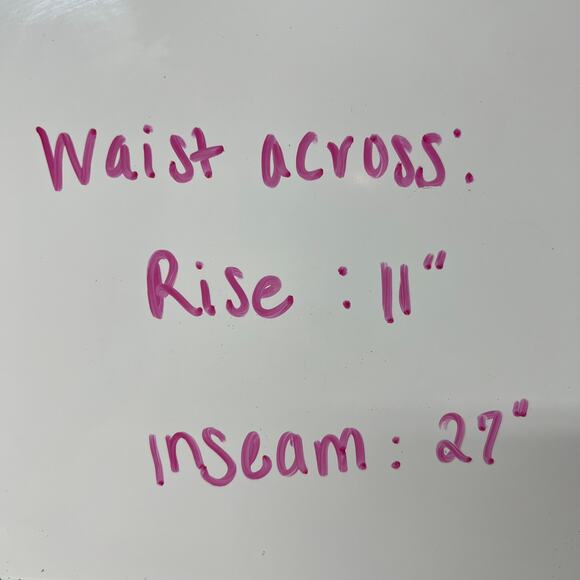 Waist across:
Rise : 11"
Inseam : 27"